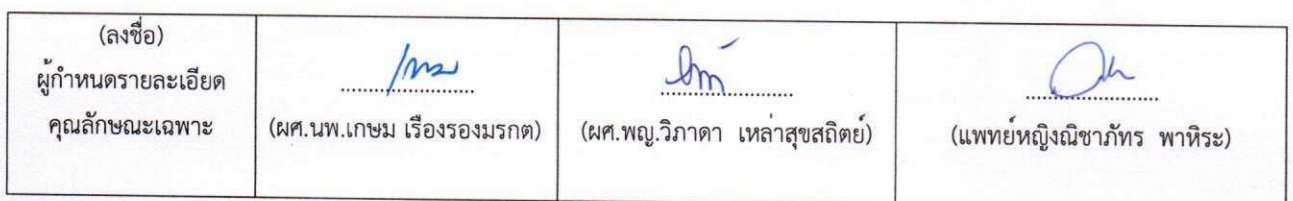 (ลงชื่อ)
ผู้กำหนดรายละเอียด
คุณลักษณะเฉพาะ
(ผศ.นพ.เกษม เรืองรองมรกต)
(ผศ.พญ.วิภาดา เหล่าสุขสถิตย์)
(แพทย์หญิงณิชาภัทร พาหิระ)